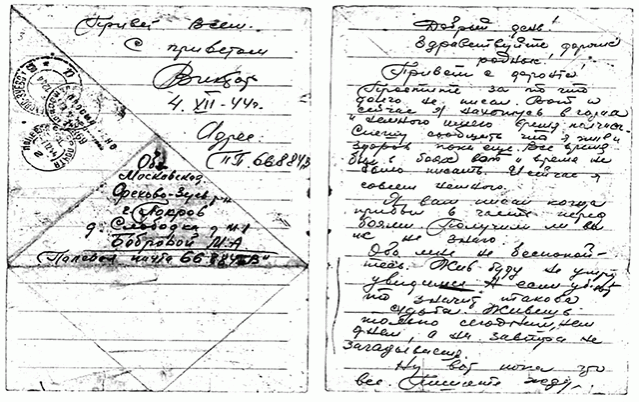 Привет Всем.
С приветом
Виктор
4. VII - 44г.
Адрес:
"П.П. 66884 В
Обл
Московская
Орехово-Зуев. р-н
г. Покров
д. Слободка д №1
Бобровой М.А
"Полевая почта 66884 "В"
Добрый день!
Здравствуйте, дорогие
родные!
Привет с фронта!
Простите за то что
долго не писал. Вот и
сейчас я нахожусь в
и немного имею время
Спешу сообщить что я жив и
здоров пока ещё. Все время
был в боях вот и время не
было писать. И сейчас я
совсем немного.
Я вам писал когда
прибыл в часть перед
боями. Получили ли вы
их не знаю.
Обо мне не беспокой-
тесь. Жив буду не умру
увидимся. А если убьют
то значит такова
судьба. Живешь
только сегодняшним
днем, а на завтра не
загадываешь.
Ну вот пока это
все. Пишите жду.